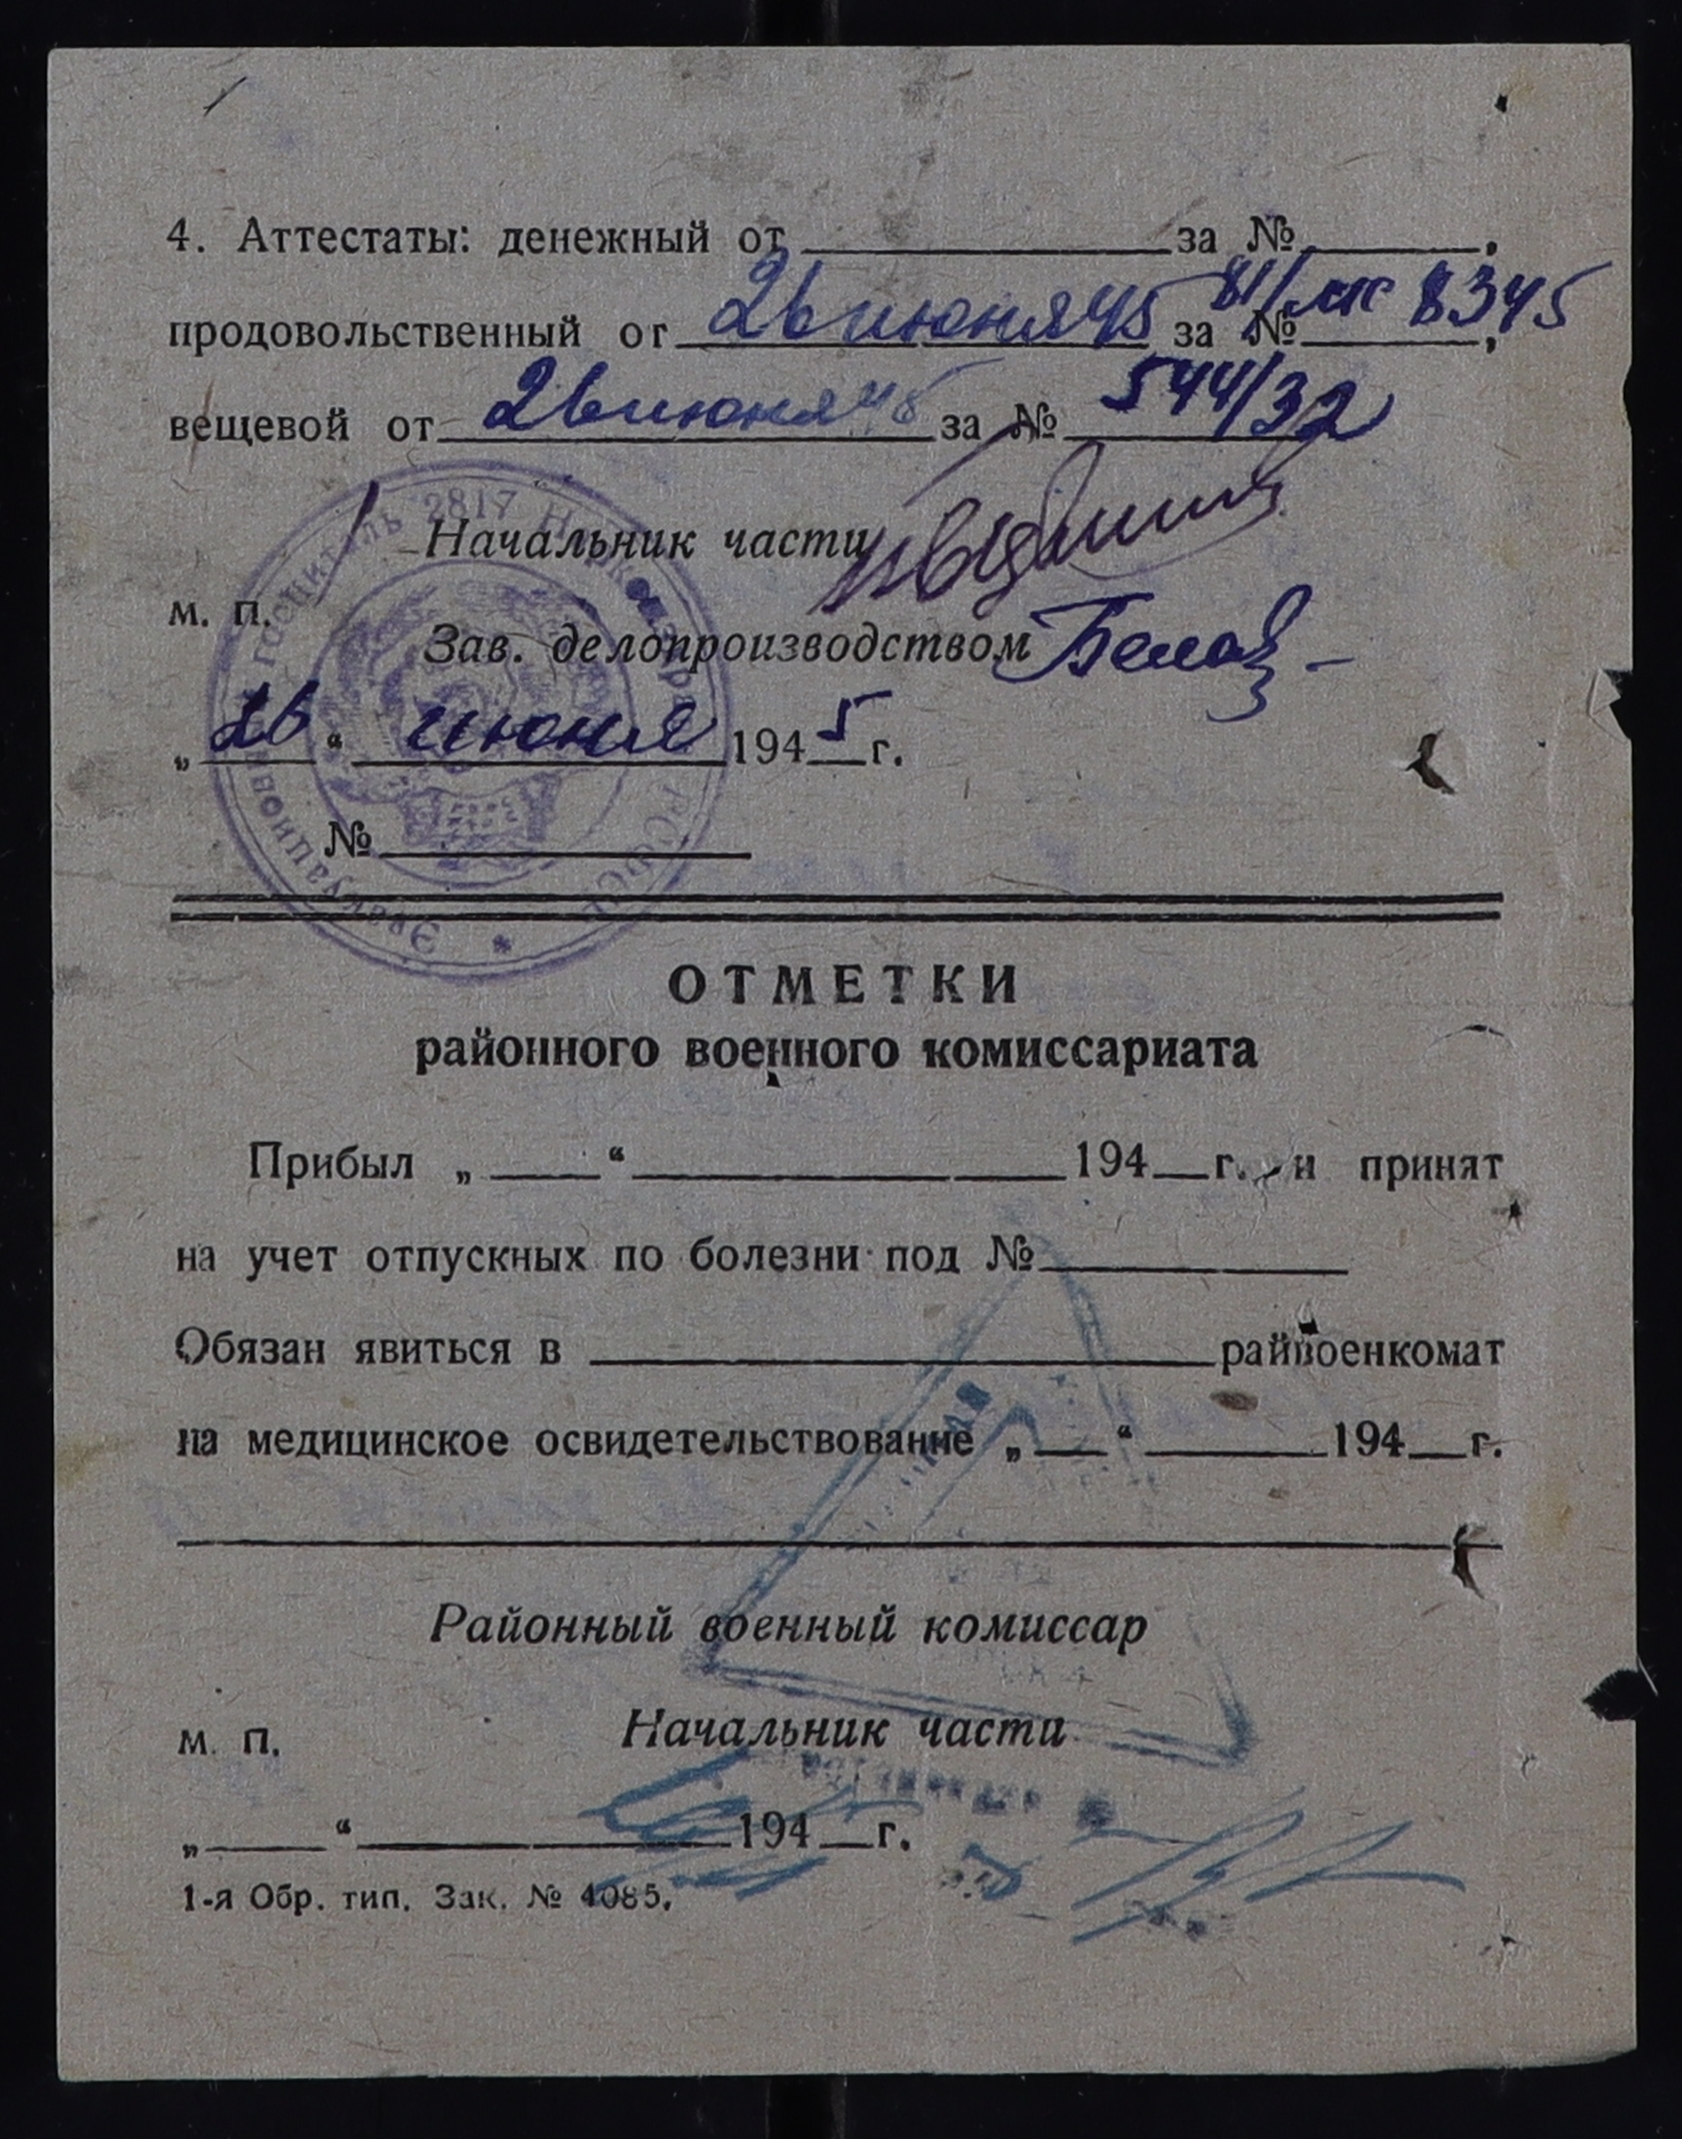 4. Аттестаты: денежный от за №,
продовольственный от 26 июня 45 за № 8345,
вещевой от 26 июня 45 за № 544/32
госпиталь 2817
Начальник части
м. п.
Зав. делопроизводством
„26“ июня 1945 г.
№
Эвакуационный РСФСР
ОТМЕТКИ
районного военного комиссариата
Прибыл „ “ 194 г. и принят
на учет отпускных по болезни под №
Обязан явиться в райвоенкомат
на медицинское освидетельствование „ “ 194 г.
Районный военный комиссар
м. п. Начальник части
„ “ 194 г.
1-я Обр. тип. Зак. № 4085.